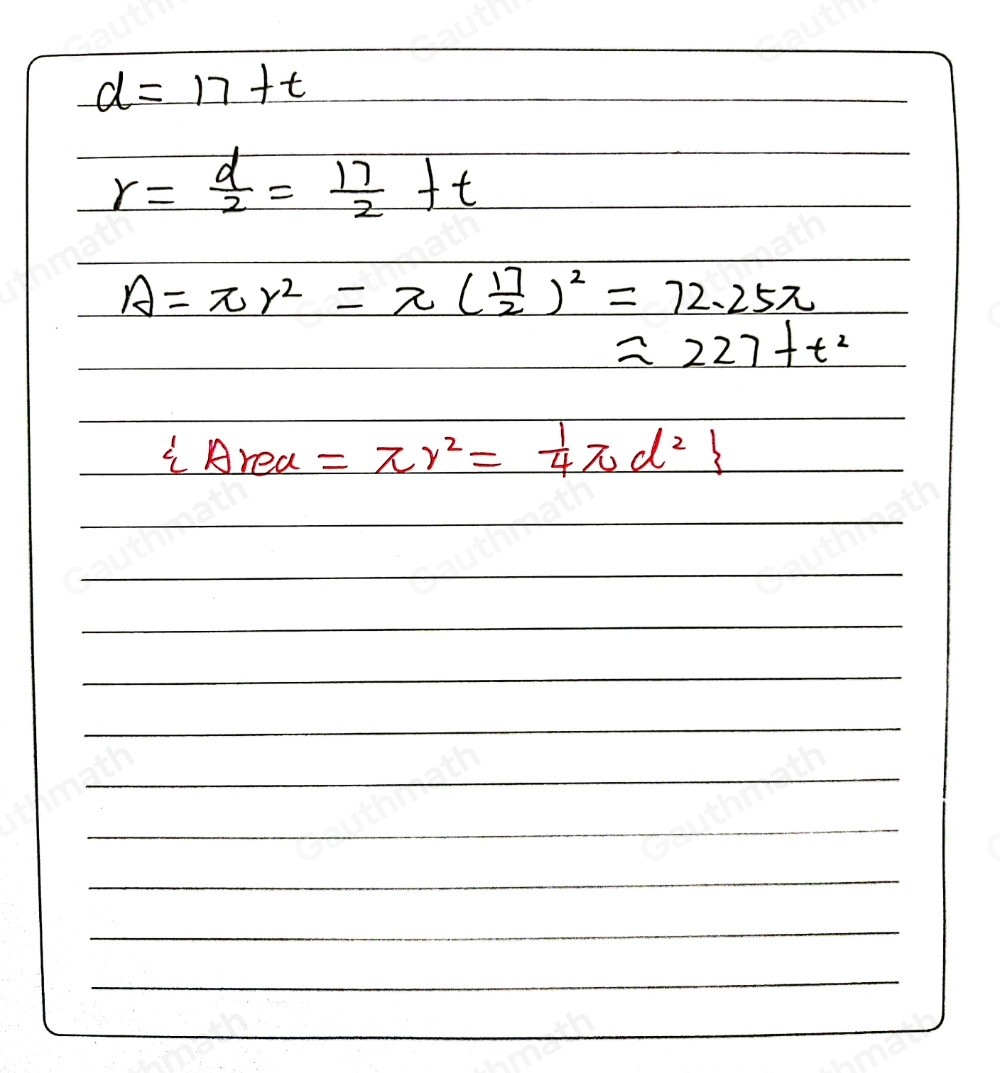 d = 17 ft
r = d/2 = 17/2 ft
A = πr² = π(17/2)² = 72.25π
≈ 227 ft²
{Area = πr² = 1/4 πd²}
Gauthmath